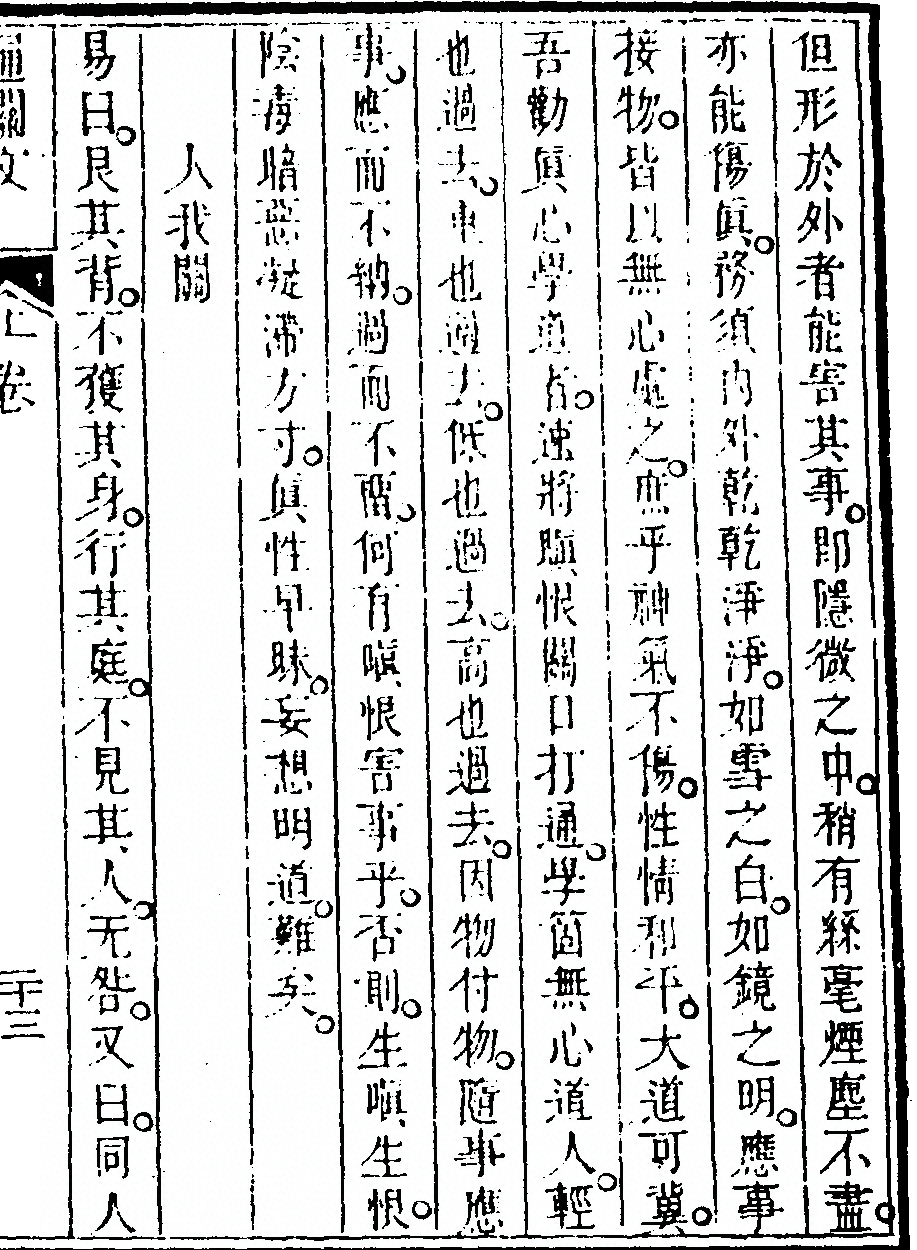 但形於外者能害其事。即隱微之中。稍有絲毫煙塵不盡。
亦能傷眞。務須內外乾乾淨淨。如雪之白。如鏡之明。應事
接物。皆以無心處之。庶乎神氣不傷。性情和平。大道可冀。
吾勸眞心學道者。速將瞋恨關口打通。學箇無心道人。輕
也過去。重也過去。低也過去。高也過去。因物付物。隨事應
事。應而不納。過而不留。何有嗔恨害事乎。否則。生嗔生恨。
陰毒暗惡凝滯方寸。眞性早昧。妄想明道。難矣。
人我關
易曰。艮其背。不獲其身。行其庭。不見其人。无咎。又曰。同人
通關文
上卷
二十三